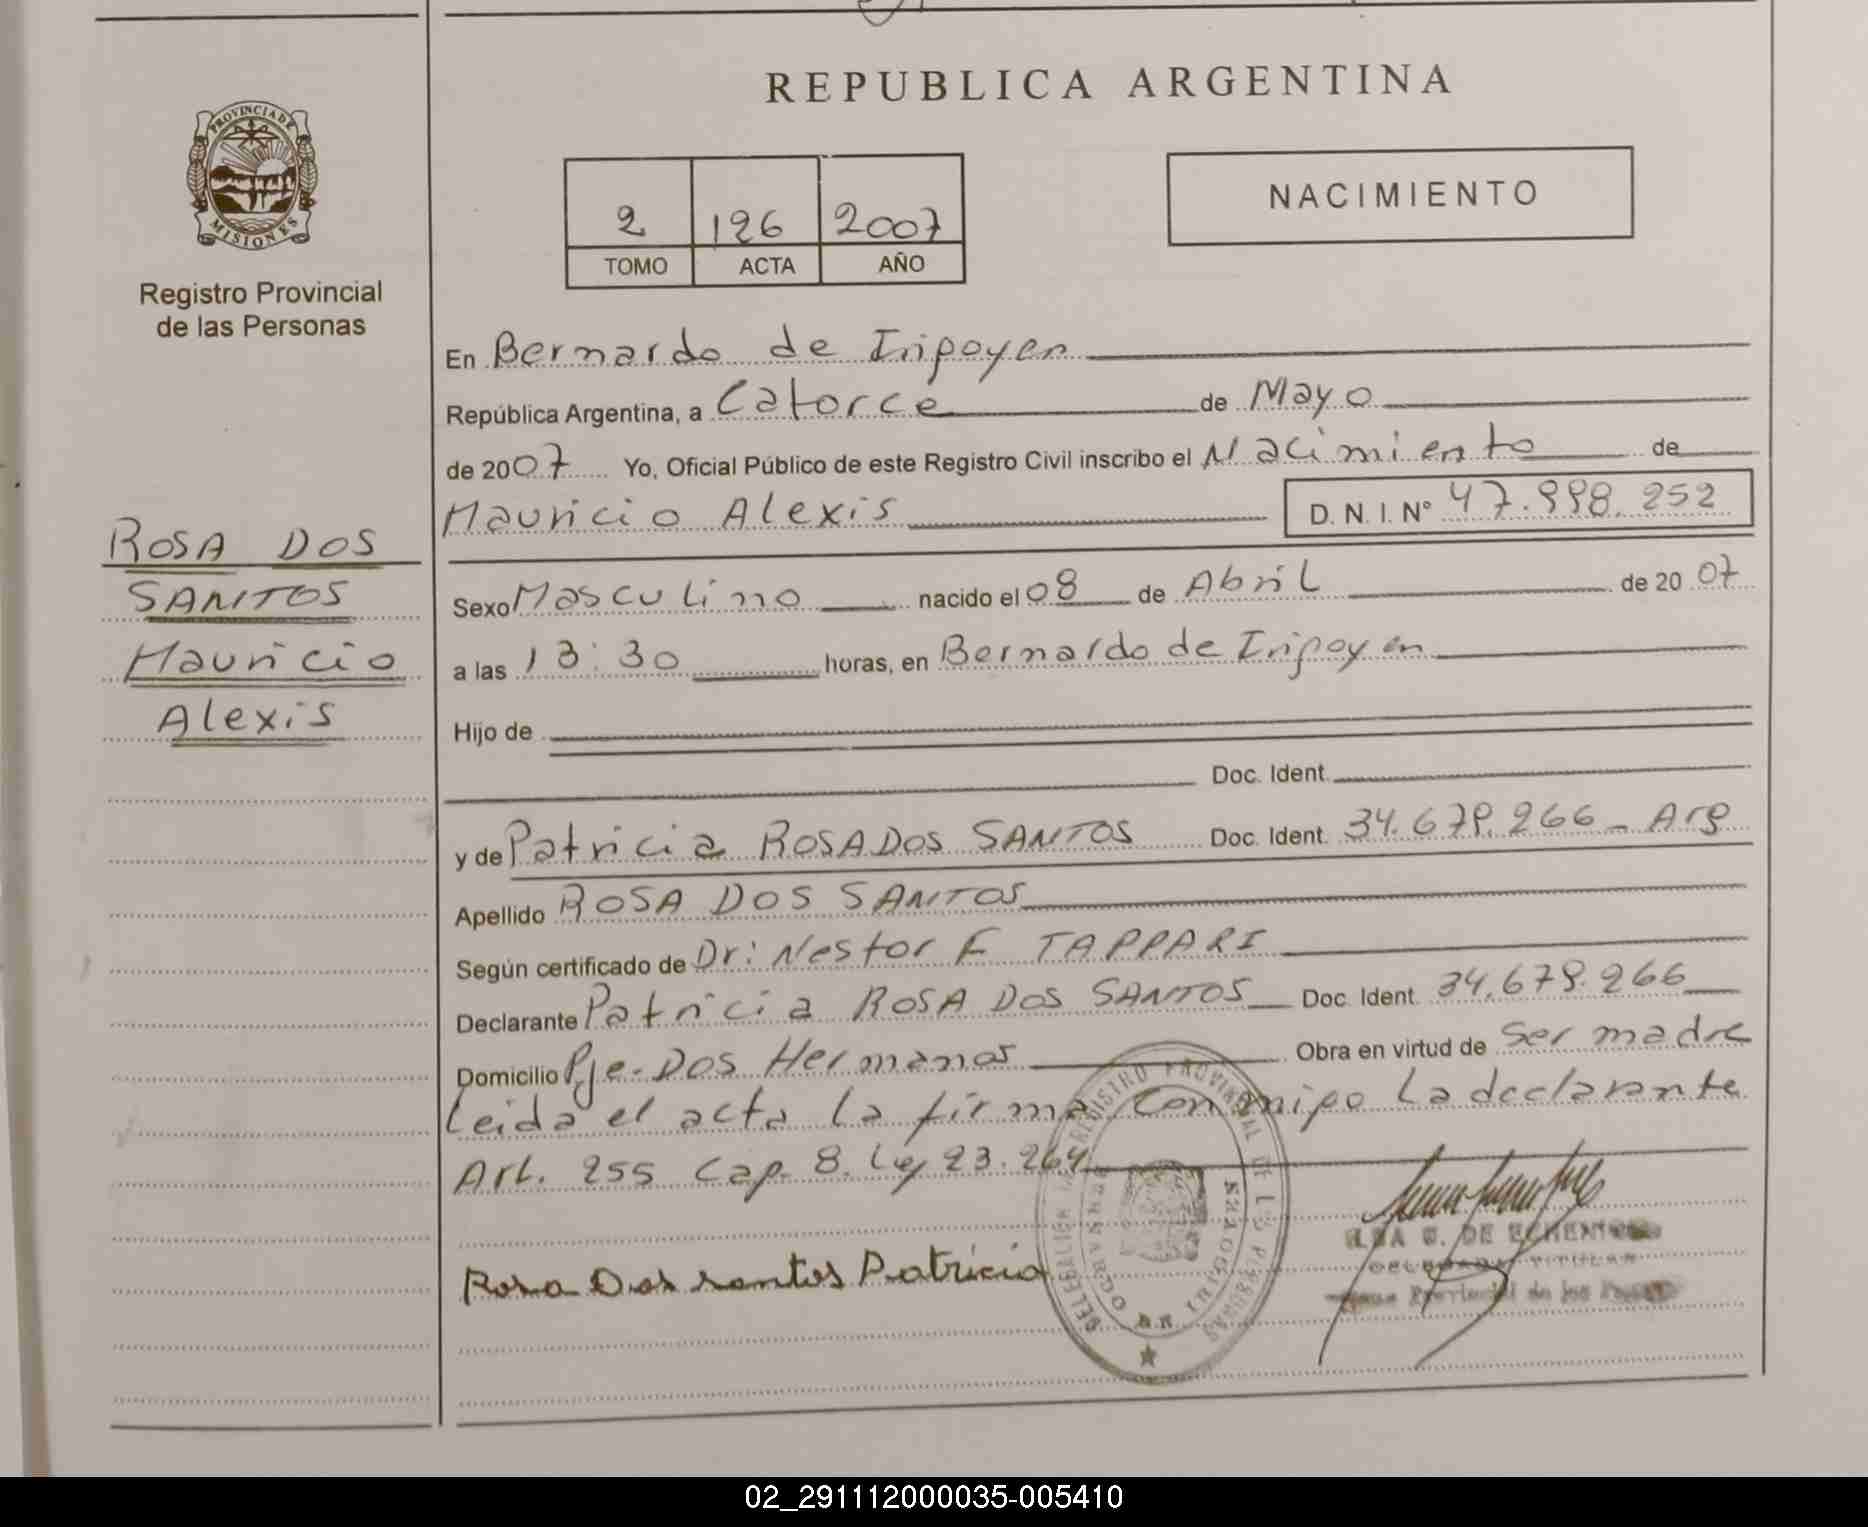 REPUBLICA ARGENTINA
PROVINCIA DE
MISIONES
Registro Provincial
de las Personas
2 126 2007
TOMO ACTA AÑO
NACIMIENTO
ROSA DOS
SANTOS
Mauricio
Alexis
En Bernardo de Irigoyen
República Argentina, a Catorce de Mayo
de 2007 Yo, Oficial Público de este Registro Civil inscribo el Nacimiento de
Mauricio Alexis D. N. I. N° 47.998.252
Sexo Masculino nacido el 08 de Abril de 20 07
a las 13:30 horas, en Bernardo de Irigoyen
Hijo de
Doc. Ident.
y de Patricia ROSA DOS SANTOS Doc. Ident. 34.679.266 - Arg
Apellido ROSA DOS SANTOS
Según certificado de Dr: Nestor F TAPPARI
Declarante Patricia ROSA DOS SANTOS Doc. Ident. 34.679.266
Domicilio Pje- Dos Hermanas Obra en virtud de ser madre
Leida el acta la firma conmigo La declarante
Art. 255 Cap. 8. Ley 23.264
Rosa Dos santos Patricia
DE ECHENI
TITULAR
Provincial de las
02_291112000035-005410